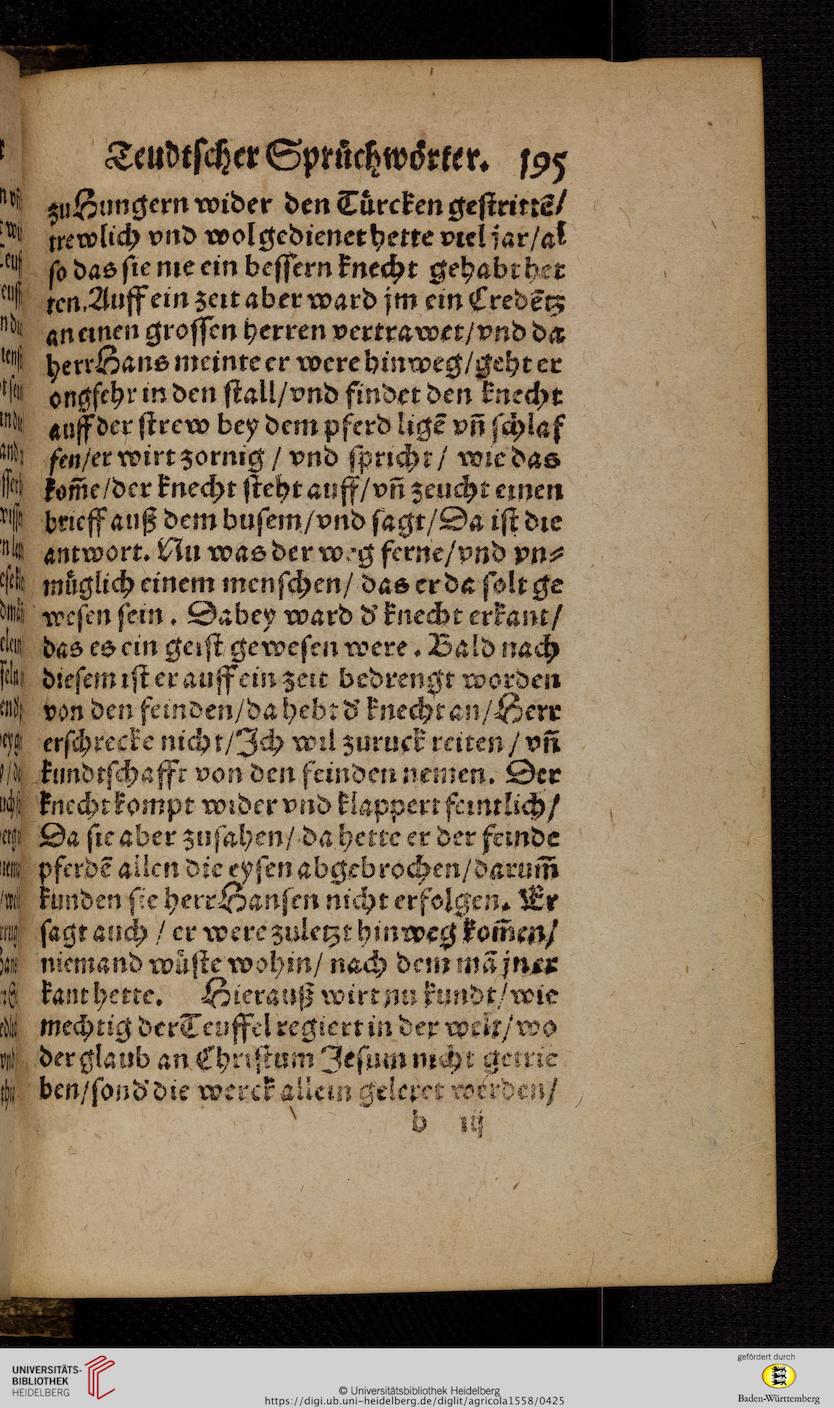 Teudtscher Sprüchwörter. 195
zu Hungern wider den Türcken gestrittē/
trewlich vnd wol gedienet hette viel jar/al
so das sie nie ein bessern knecht gehabt het
ten. Auff ein zeit aber ward jm ein Credētz
an einen grossen herren vertrawet/vnd da
herr Hans meinte er were hinweg/geht er
ongfehr in den stall/vnd findet den knecht
auff der strew bey dem pferd ligē vñ schlaf
fen/er wirt zornig / vnd spricht/ wie das
kom̄e/der knecht steht auff/vñ zeucht einen
brieff auß dem busem/vnd sagt/Da ist die
antwort. Nu was der weg ferne/vnd vn⸗
müglich einem menschen/ das er da solt ge
wesen sein. Dabey ward d' knecht erkant/
das es ein geist gewesen were. Bald nach
diesem ist er auff ein zeit bedrengt worden
von den feinden/da hebt d' knecht an/Herr
erschrecke nicht/Ich wil zuruck reiten / vñ
kundtschafft von den feinden nemen. Der
knecht kompt wider vnd klappert feintlich/
Da sie aber zusahen/ da hette er der feinde
pferdē allen die eysen abgebrochen/darum̄
kunden sie herr Hansen nicht erfolgen. Er
sagt auch / er were zuletzt hinweg kom̄en/
niemand wüste wohin/ nach dem mā jn er
kant hette. Hierauß wirt nu kundt/wie
mechtig der Teuffel regiert in der welt/wo
der glaub an Christum Jesum nicht getrie
ben/sond' die werck allein geleret werden/
b iij
UNIVERSITÄTS-
BIBLIOTHEK
HEIDELBERG
© Universitätsbibliothek Heidelberg
https://digi.ub.uni-heidelberg.de/diglit/agricola1558/0425
gefördert durch
Baden-Württemberg